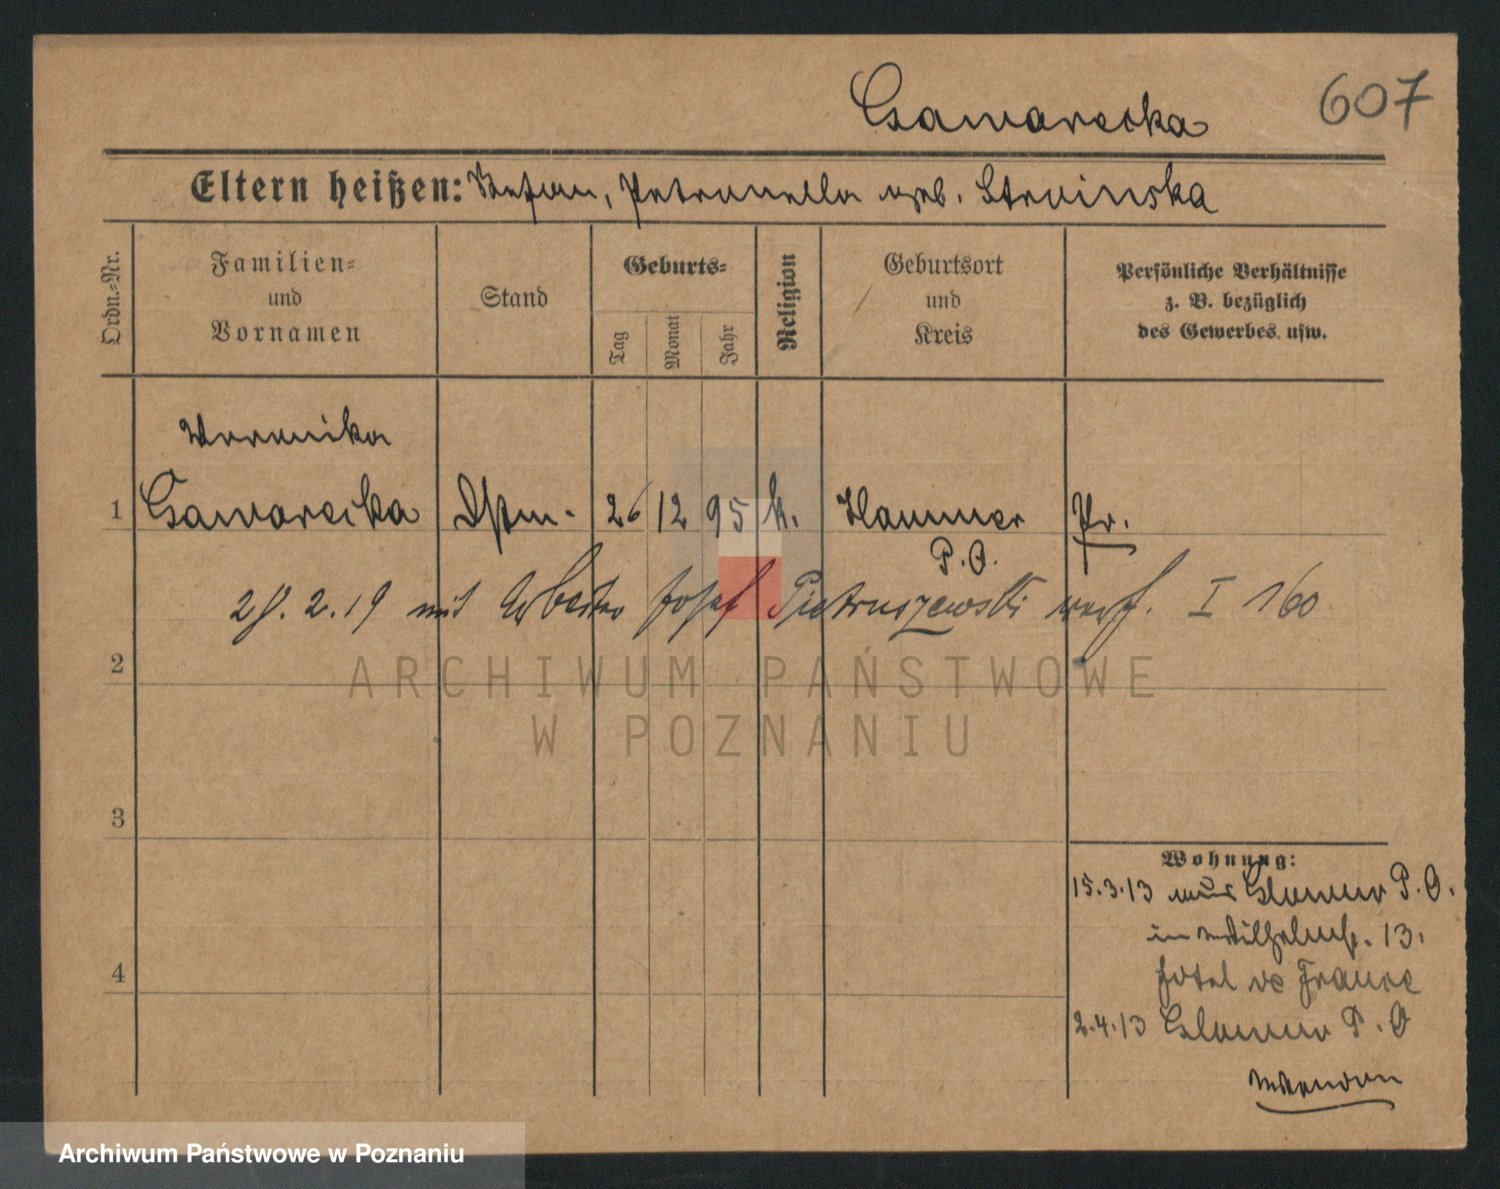 607
Eltern heißen: Stefan, Petronella geb.
Ordn.-Nr.
Familien-
und
Vornamen
Stand
Geburts-
Tag
Monat
Jahr
Religion
Geburtsort
und
Kreis
Persönliche Verhältnisse
z. B. bezüglich
des Gewerbes usw.
Veronika
1 26 12 95 k. Hammer Pr.
P. O.
28. 2. 19 mit Arbeiter Josef Pietruszewski verh. I 160
2
ARCHIWUM PAŃSTWOWE
W POZNANIU
3
Wohnung:
15.3.13 aus P. O.
in Wilhelmst. 13.
Hotel de France
4
2.4.13 P. O
Archiwum Państwowe w Poznaniu